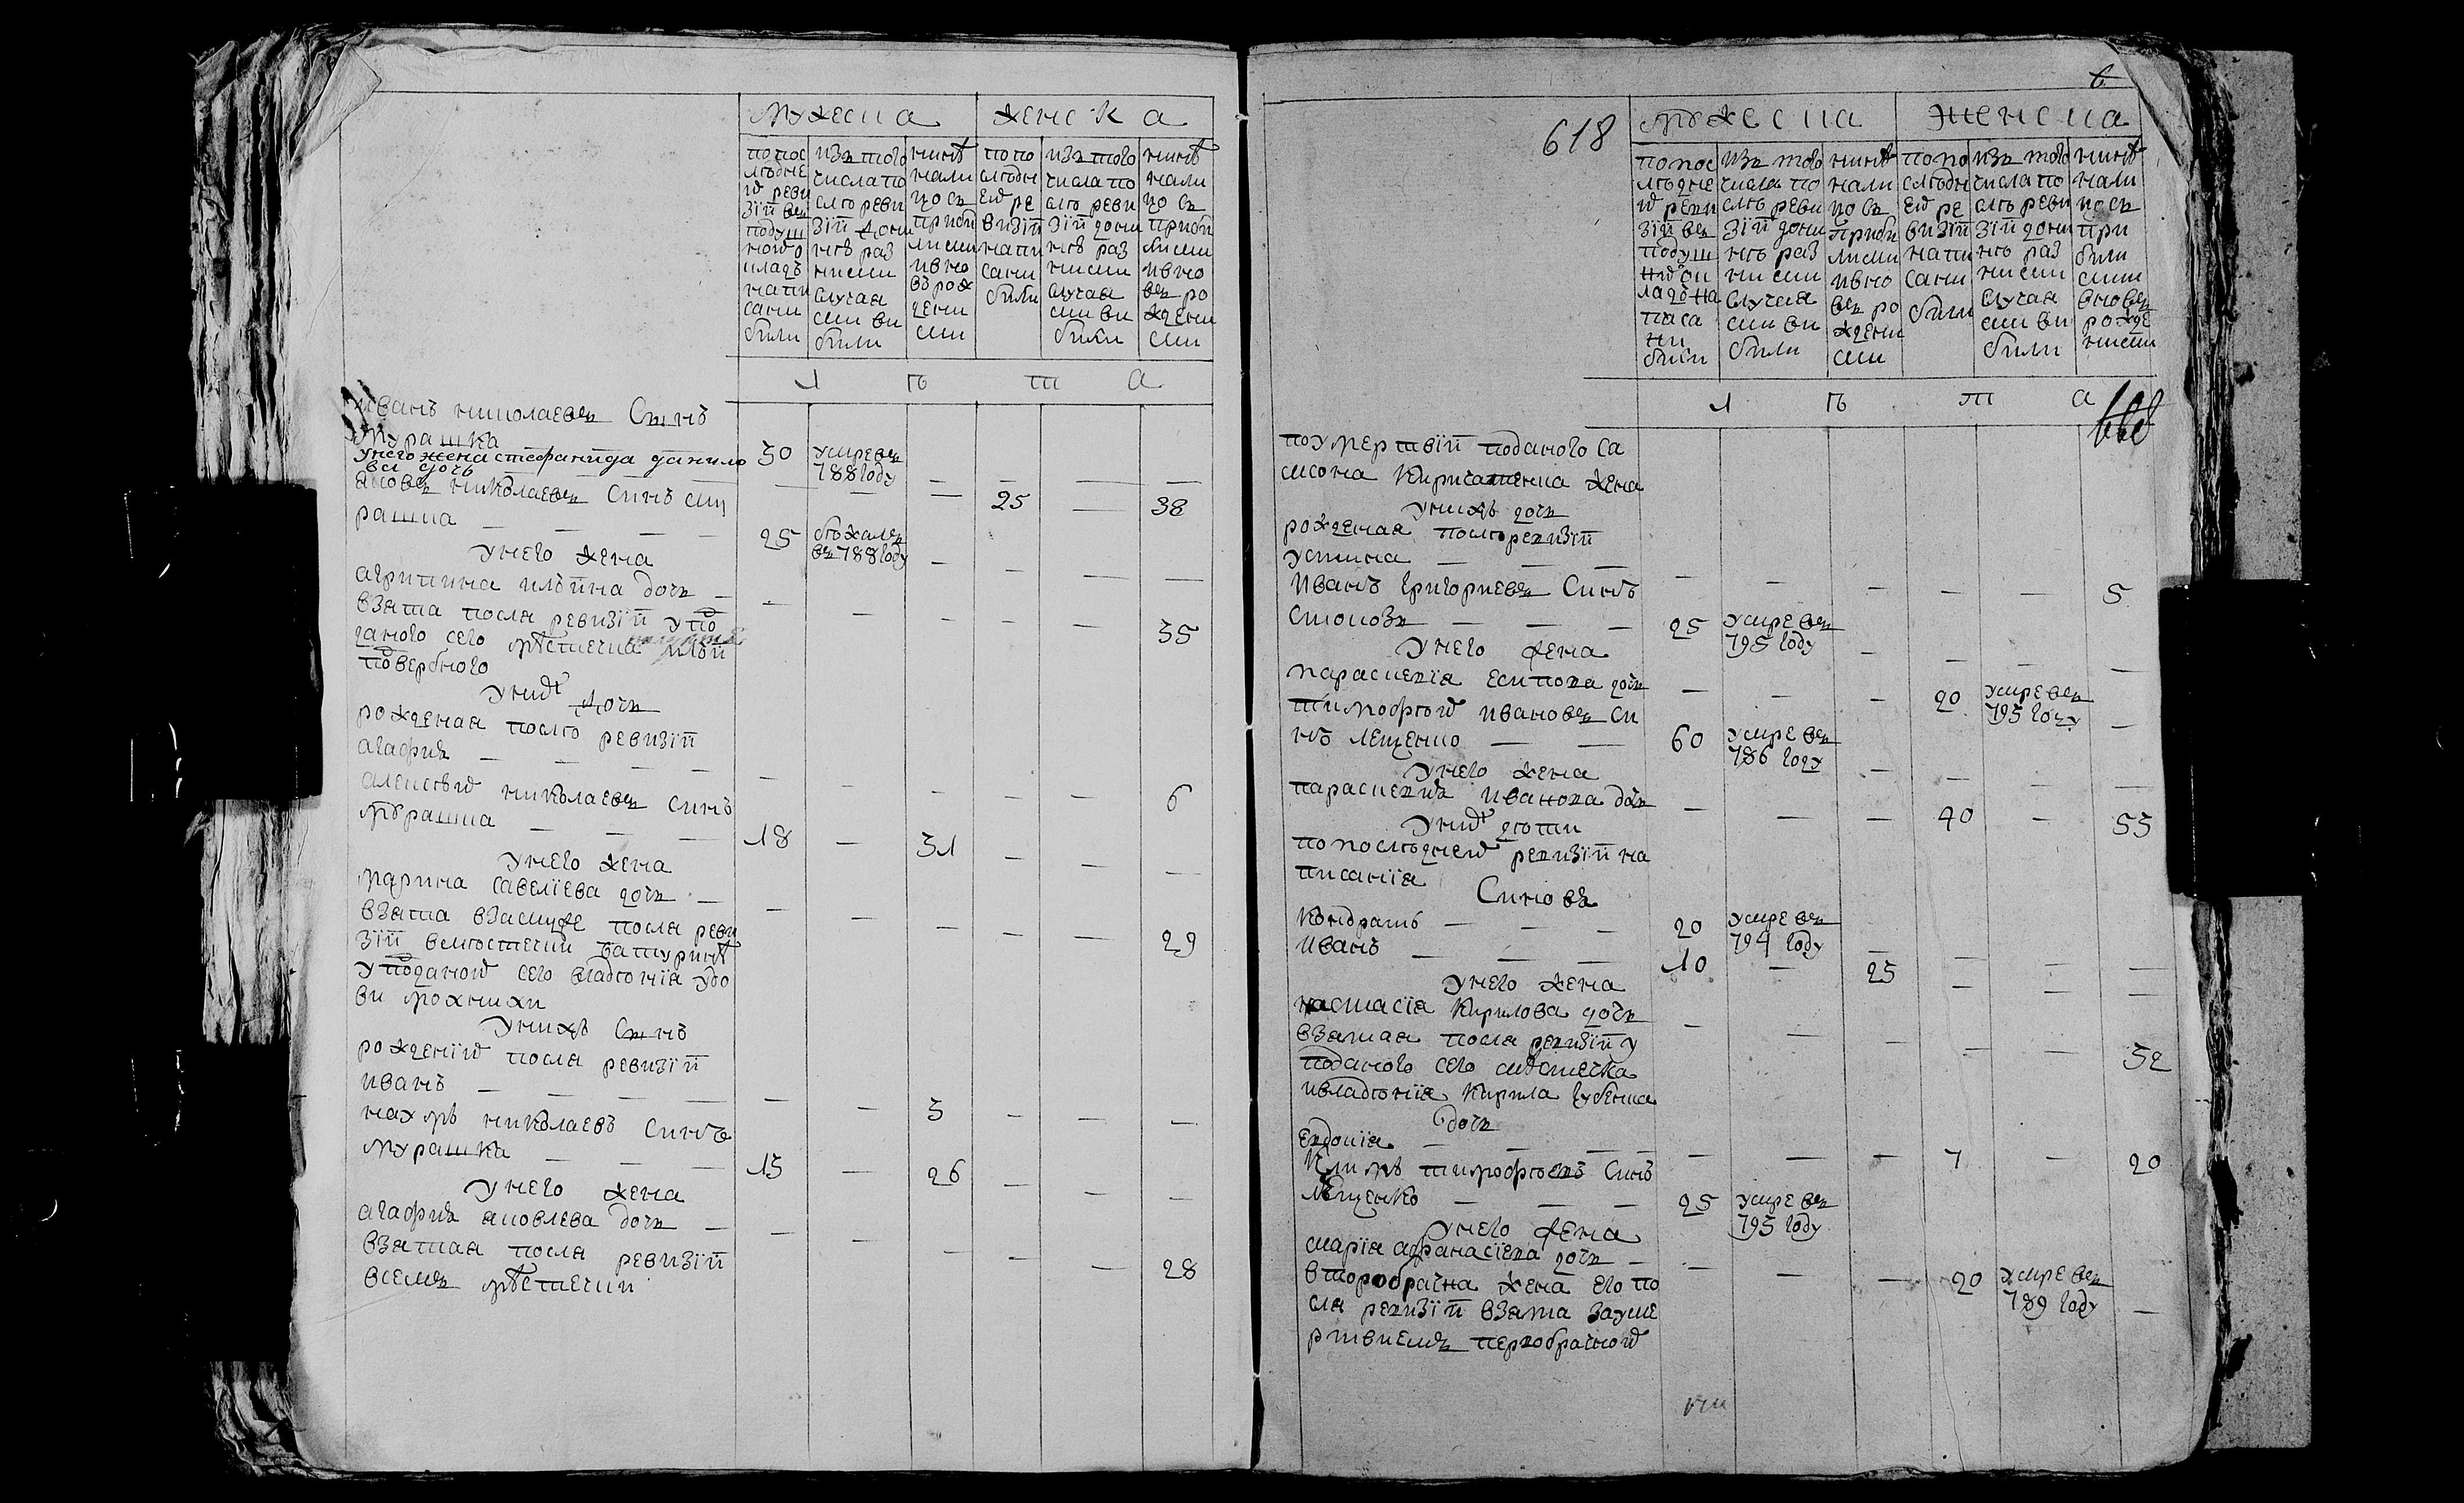 мужеска женска
попос лѣдне й реви зїй въ подуш ной о кладъ напи сани били
изъ того числа по слѣ реви зїй до ни нѣ раз ними случая ми ви били
нинѣ нали цо съ приби лими ивно въ рож дени ми
по по слѣдн ей ре визїй напи сани били
изъ того числа по слѣ реви зїй дони нѣ раз ними случая ми ви били
нинѣ нали цо съ приби лими ивно въ ро ждени ми
л ѣ т а
иванъ николаевъ Синъ
Мурашка 30 умре въ 788 году
унего жена стефанида данило
ва дочь 25 38
яковъ николаевъ Синъ му
рашка 25 бѣжалъ въ 788 году
унего жена
агрипина илїйна дочь 35
взята посля ревизїй у по
даного сего мѣстечка илїй
подвербного
унихъ дочь
рожденая послѣ ревизїй
агафия 6
алексѣй николаевъ Синъ
мурашка 18 31
унего жена
марина савелїева дочь 29
взята взамуже посля реви
зїй вмѣстечки батуринѣ
у поданой сего владѣнїя удо
ви мохнихи
унихъ Синъ
рожденїй посля ревизїй
иванъ 3
нахумъ николаевъ Синъ
мурашка 13 26
унего жена
агафия яковлева дочь 28
взятая посля ревизїй
всемъ мѣстечки
618
мужеска женска
попос лѣдне й реви зїй въ подуш ний ок ладъ на писа ни били
изъ того числа по слѣ реви зїй дони нѣ раз ними случая ми ви били
нинѣ нали цо съ приби лими ивно въ ро ждени ми
попо слѣдн ей ре визїй напи сани били
изъ того числа по слѣ реви зїй дони нѣ раз ними случая ми ви били
нинѣ нали цо съ при били ми вновъ рожде ними
л ѣ т а
поумертвїй поданого са
мсона Киричатенка жена
унихъ дочь
рожденая послѣ ревизїй
устина 5
Иванъ григориевъ Синъ
25 умре въ 795 году
унего жена
параскевїя есипова дочь 20 умре въ 795 году
тимофѣй ивановъ Си
нъ лещенко 60 умре въ 786 году
унего жена
параскевия иванова дочь 40 53
унихъ дѣти
по послѣдней ревизїй на
писанїя
Синовя
Кондратъ 20 умре въ 794 году
иванъ 10 25
унего жена
настасїя Кирилова дочь 32
взятая посля ревизїй у
поданого сего мѣстечка
ивладѣнїя Кирила губенка
дочь
евдокїя 7 20
Климъ тимофѣевъ Синъ
лещенко 25 умре въ 795 году
унего жена
марїя афанасїева дочь 20 умре въ 789 году
второбрачна жена его по
сля ревизїй взята зауме
ртвиемъ первобрачной